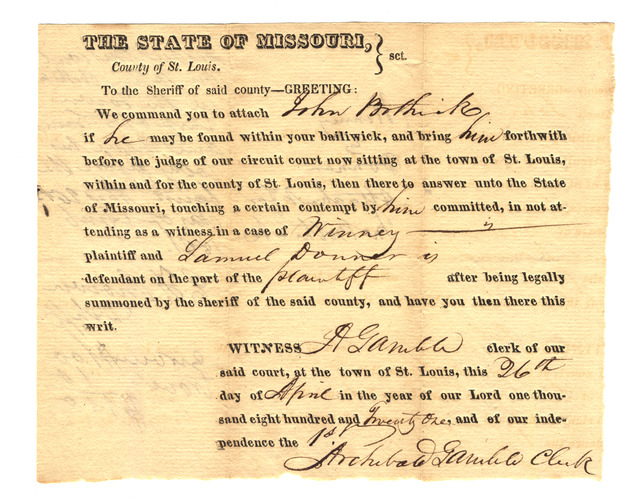 THE STATE OF MISSOURI, } sct.
County of St. Louis.
To the Sheriff of said county—GREETING:
We command you to attach John Bothick
if he may be found within your bailiwick, and bring him forthwith
before the judge of our circuit court now sitting at the town of St. Louis,
within and for the county of St. Louis, then there to answer unto the State
of Missouri, touching a certain contempt by him committed, in not at-
tending as a witness in a case of Winney is
plaintiff and Samuel Donner is
defendant on the part of the plaintiff after being legally
summoned by the sheriff of the said county, and have you then there this
writ.
WITNESS A Gamble clerk of our
said court, at the town of St. Louis, this 26th
day of April in the year of our Lord one thou-
sand eight hundred and Twenty One, and of our inde-
pendence the
Archibald Gamble Clerk